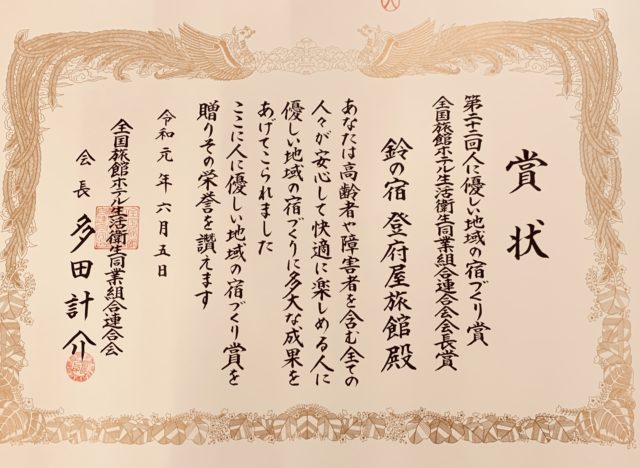 賞状
第二十二回人に優しい地域の宿づくり賞
全国旅館ホテル生活衛生同業組合連合会会長賞
鈴の宿 登府屋旅館殿
あなたは高齢者や障害者を含む全ての
人々が安心して快適に楽しめる人に
優しい地域の宿づくりに多大な成果を
あげてこられました
ここに人に優しい地域の宿づくり賞を
贈りその栄誉を讃えます
令和元年六月五日
全国旅館ホテル生活衛生同業組合連合会
会長 多田計介